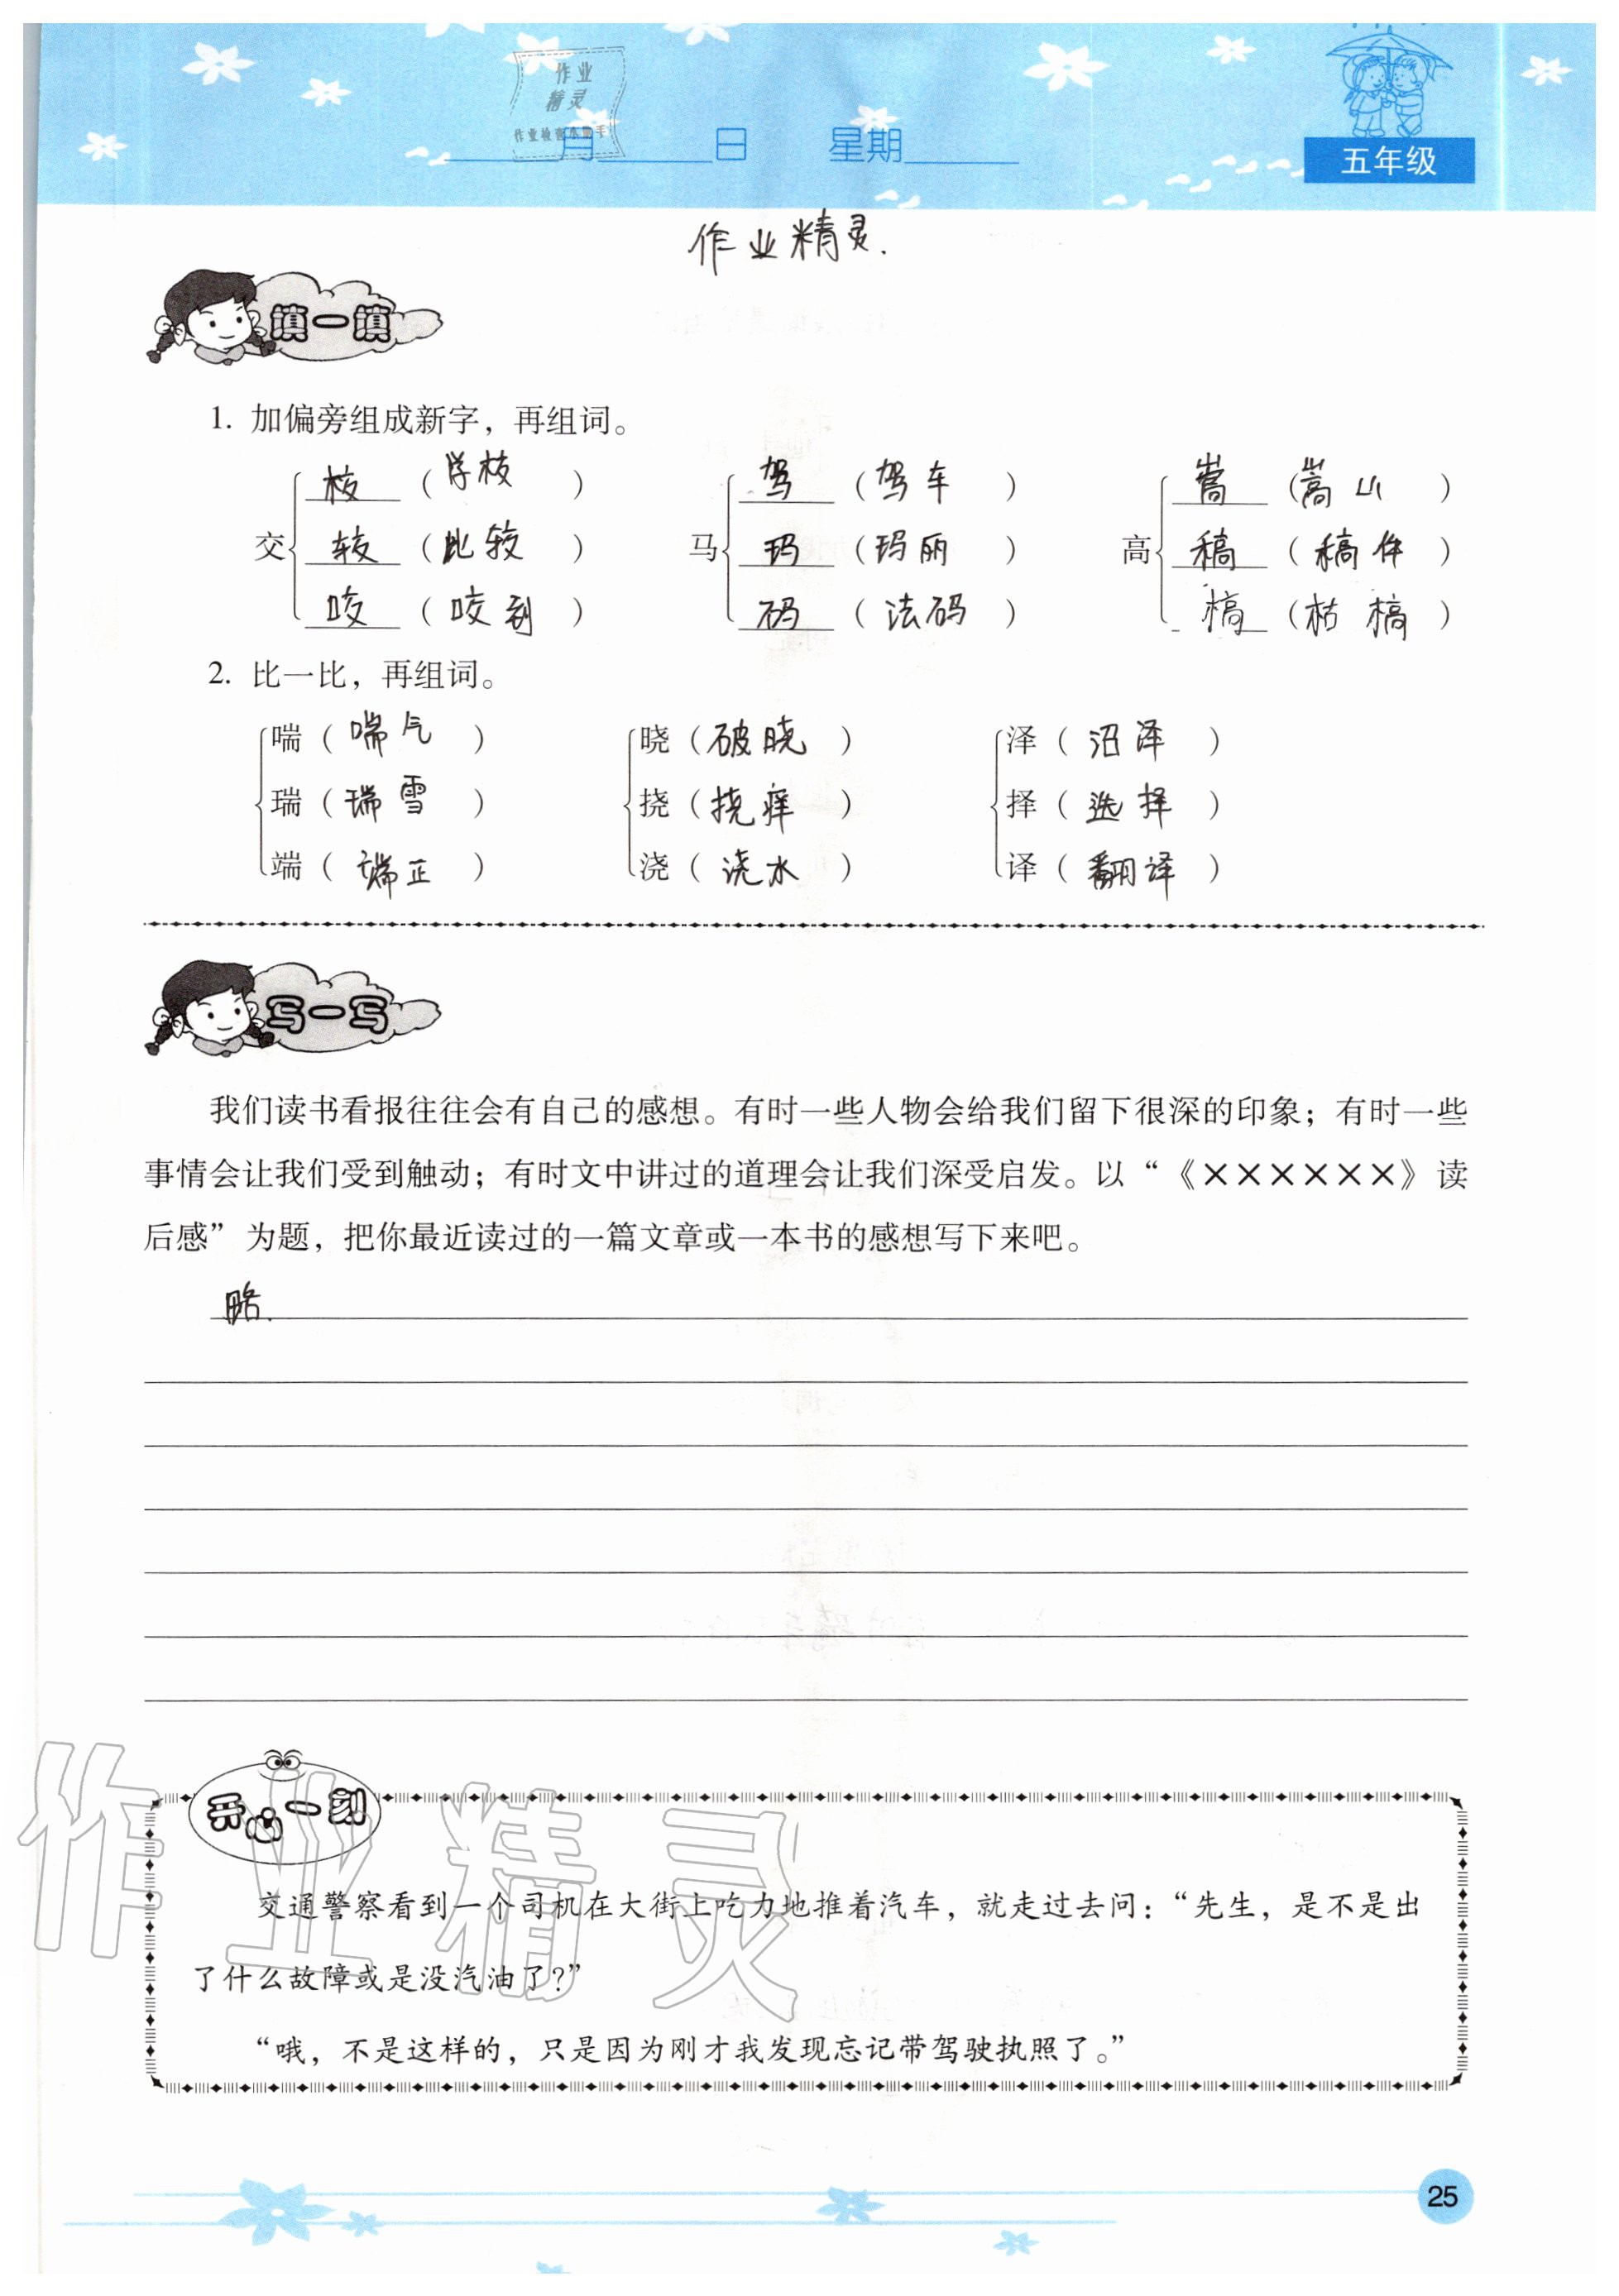 作业
精灵
作业检查小助手
月 日 星期
五年级
作业精灵.
填一填
1. 加偏旁组成新字，再组词。
交 校（学校） 马 驾（驾车） 高 嵩（嵩山）
较（比较） 玛（玛丽） 稿（稿件）
咬（咬到） 码（法码） 槁（枯槁）
2. 比一比，再组词。
喘（喘气） 晓（破晓） 泽（沼泽）
瑞（瑞雪） 挠（挠痒） 择（选择）
端（端正） 浇（浇水） 译（翻译）
写一写
我们读书看报往往会有自己的感想。有时一些人物会给我们留下很深的印象；有时一些
事情会让我们受到触动；有时文中讲过的道理会让我们深受启发。以“《××××××》读
后感”为题，把你最近读过的一篇文章或一本书的感想写下来吧。
略.
开心一刻
交通警察看到一个司机在大街上吃力地推着汽车，就走过去问：“先生，是不是出
了什么故障或是没汽油了？”
“哦，不是这样的，只是因为刚才我发现忘记带驾驶执照了。”
作业精灵
25